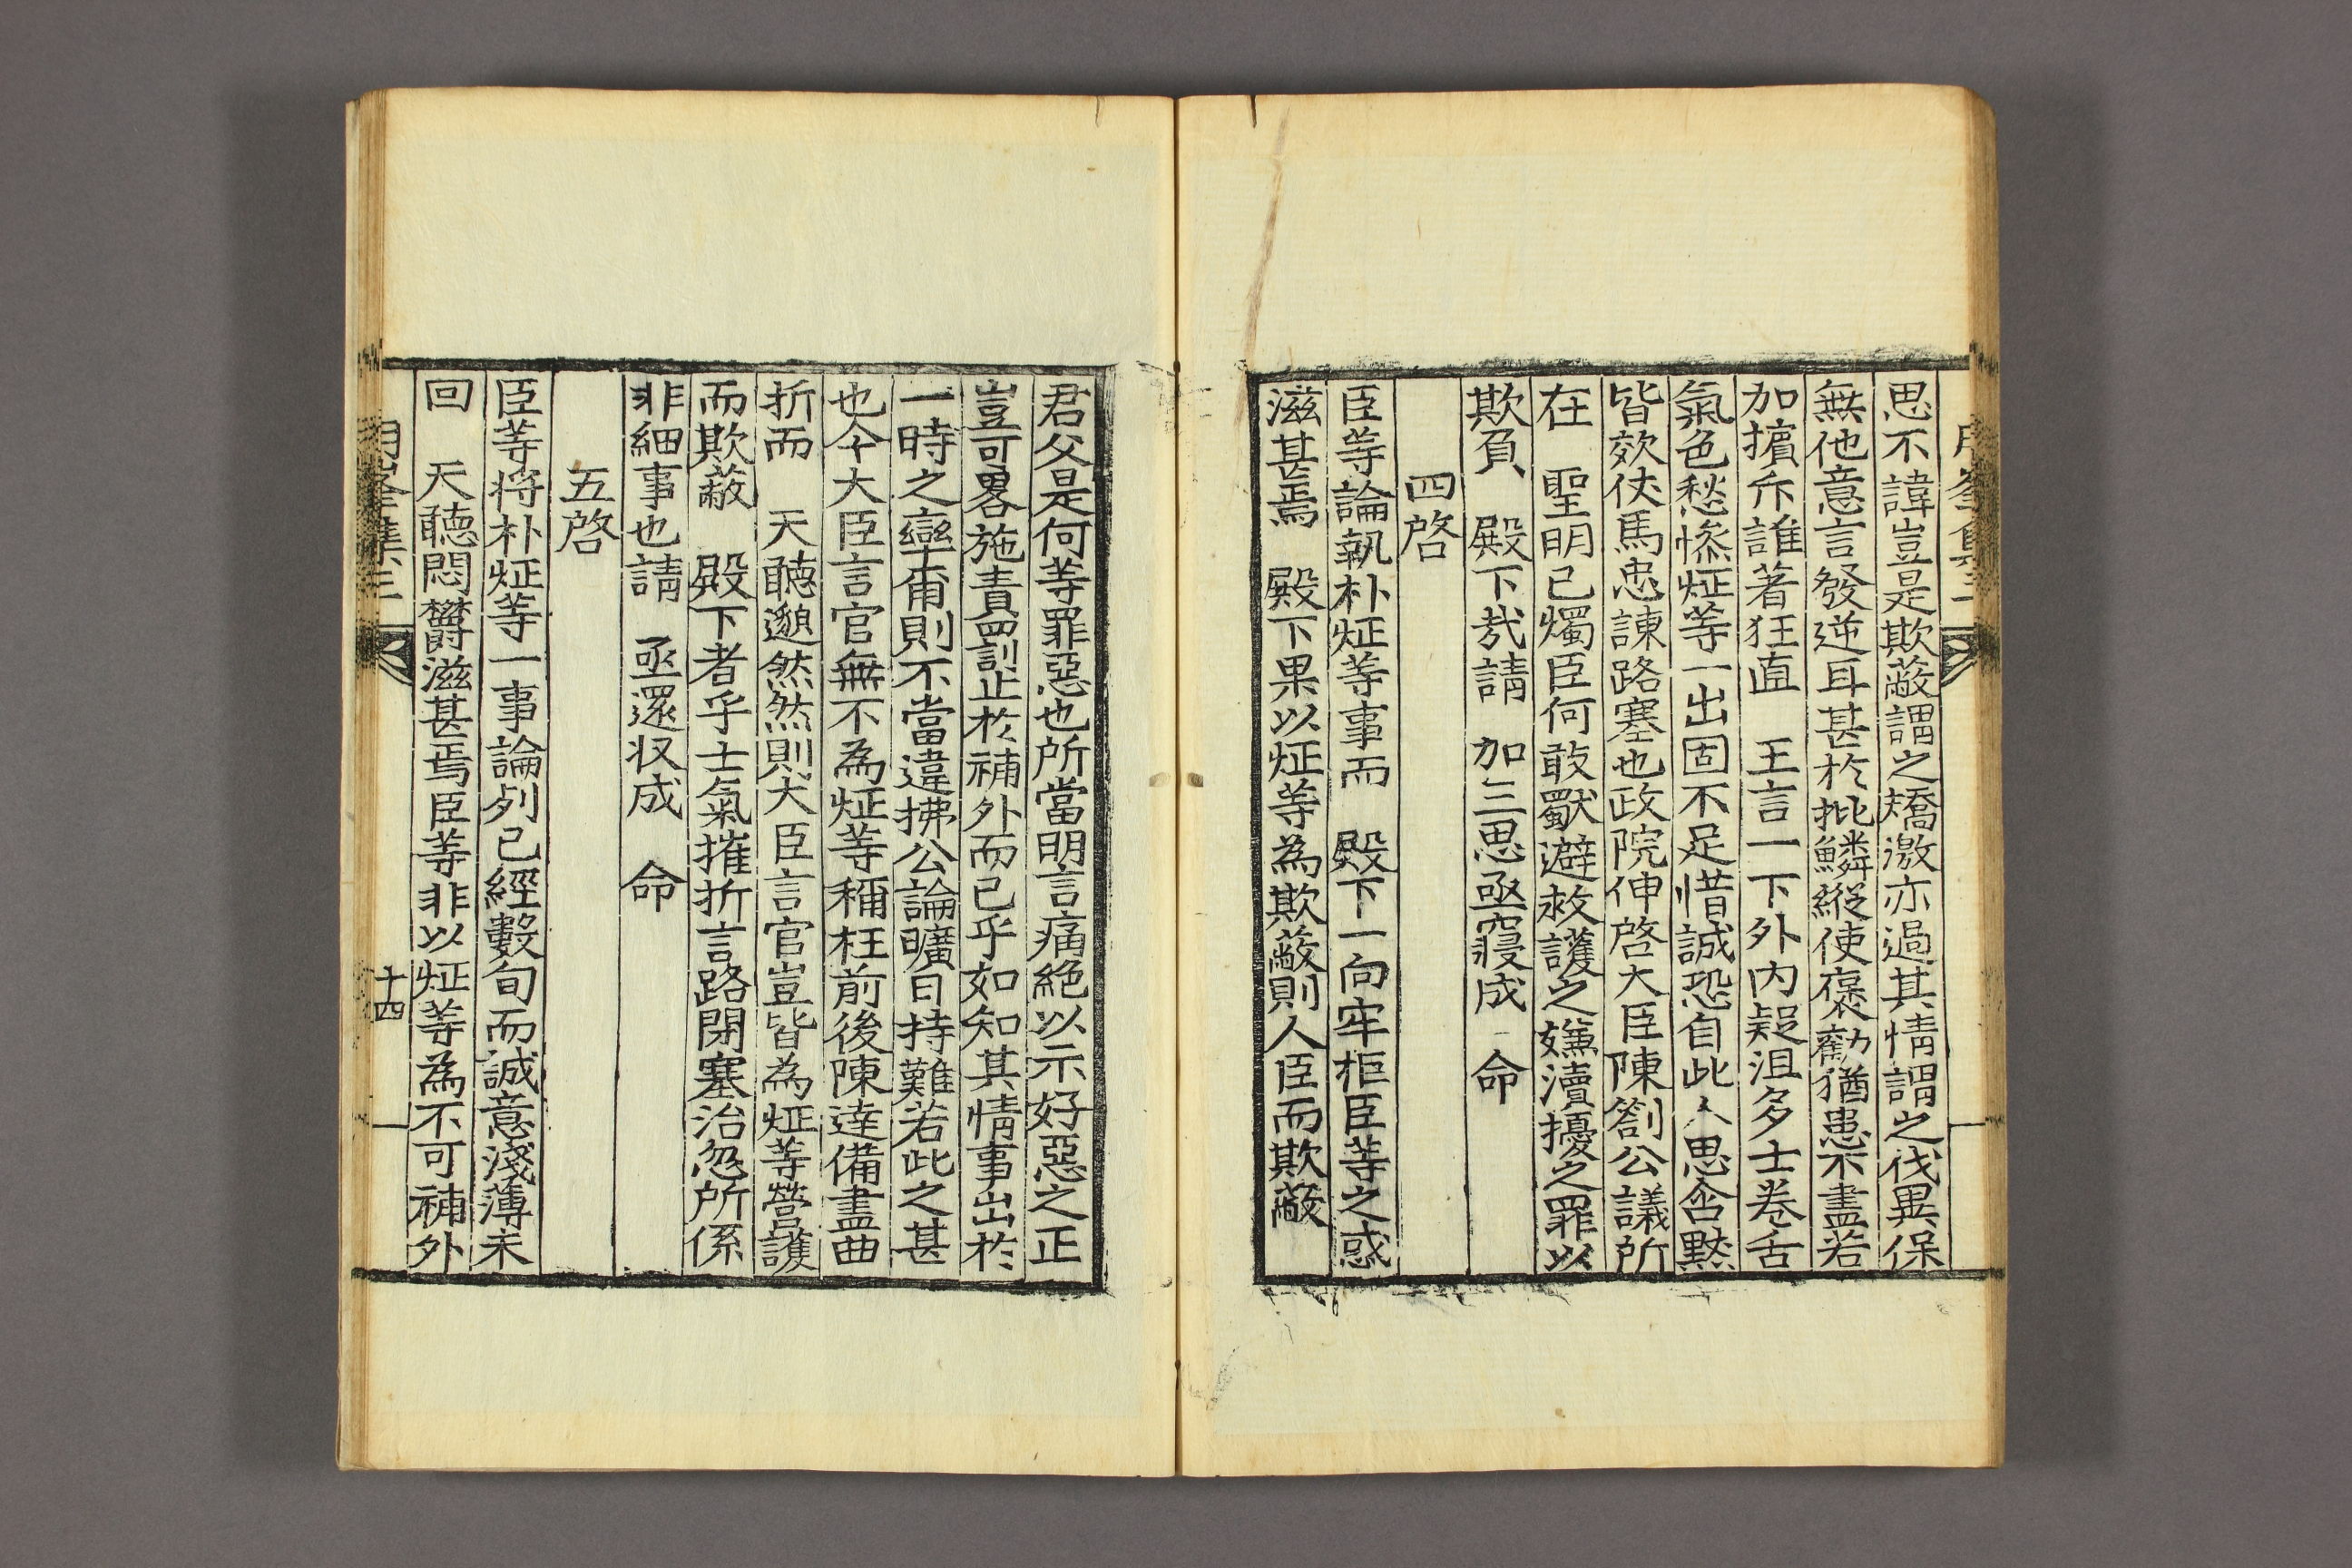 思不諱豈是欺蔽謂之矯激亦過其情謂之伐異保
無他意言發逆耳甚於批鱗縱使褒勸猶患不盡若
加擯斥誰著狂直　王言一下外內疑沮多士卷舌
氣色愁慘炡等一出固不足惜誠恐自此人思含默
皆效仗馬忠諫路塞也政院伸啓大臣陳劄公議所
在　聖明已燭臣何敢獸避救護之嫌瀆擾之罪以
欺負　殿下㢤請　加三思亟寢成　命
四啓
臣等論執朴炡等事而　殿下一向牢拒臣等之惑
滋甚焉　殿下果以炡等為欺蔽則人臣而欺蔽
君父是何等罪惡也所當明言痛絕以示好惡之正
豈可畧施責罰止於補外而已乎如知其情事出於
一時之孿甭則不當違拂公論曠日持難若此之甚
也今大臣言官無不為炡等稱枉前後陳達備盡曲
折而　天聽邈然然則大臣言官豈皆為炡等營護
而欺蔽　殿下者乎士氣摧折言路閉塞治忽所係
非細事也請　亟還収成　命
五啓
臣等將朴炡等一事論列已經數旬而誠意淺薄未
回　天聽悶欝滋甚焉臣等非以炡等為不可補外
十四